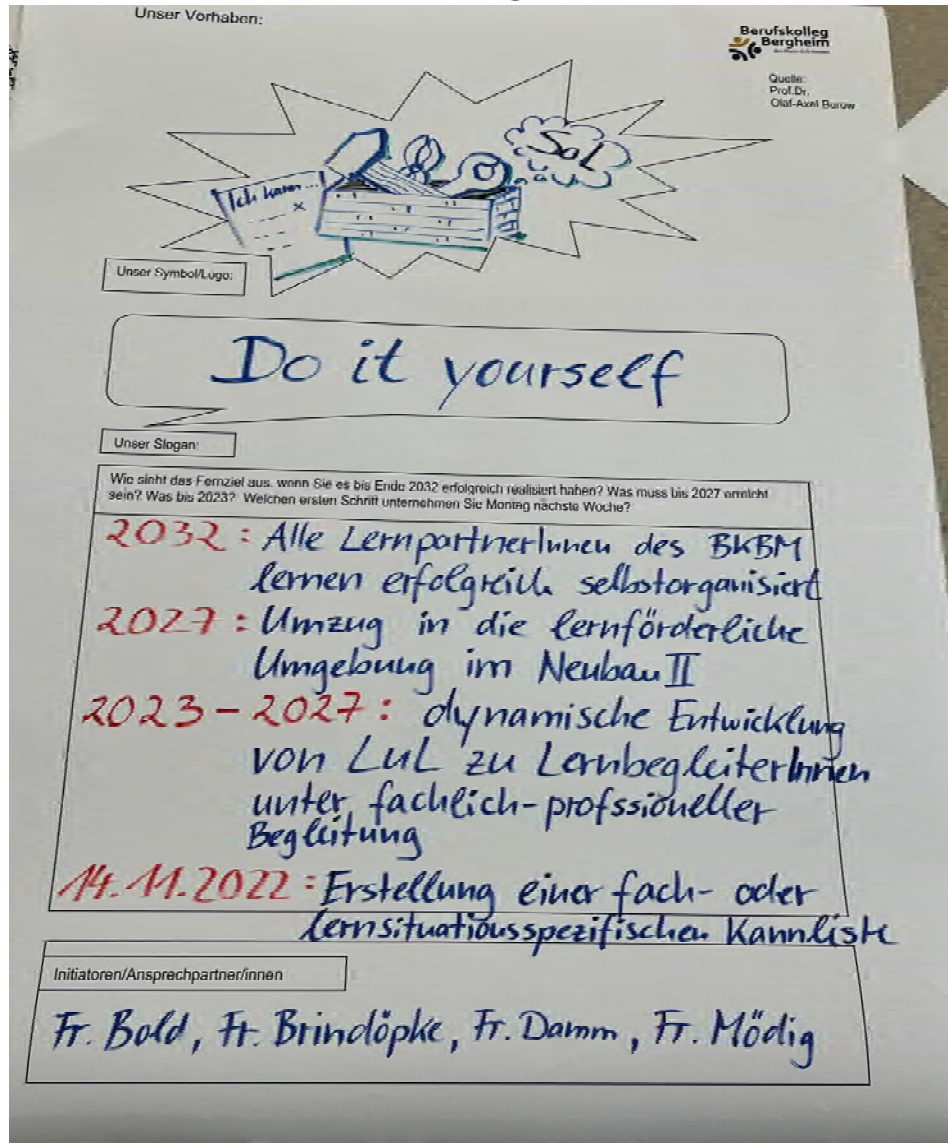 Unser Vorhaben:
Berufskolleg
Bergheim
Quelle:
Prof.Dr.
Olaf-Axel Burow
SoL
Ich kann...
x
Unser Symbol/Logo:
Do it yourself
Unser Slogan:
Wie sieht das Fernziel aus, wenn Sie es bis Ende 2032 erfolgreich realisiert haben? Was muss bis 2027 erreicht
sein? Was bis 2023? Welchen ersten Schritt unternehmen Sie Montag nächste Woche?
2032: Alle LernpartnerInnen des BKBM
lernen erfolgreich selbstorganisiert
2027: Umzug in die lernförderliche
Umgebung im Neubau II
2023-2027: dynamische Entwicklung
von LuL zu LernbegleiterInnen
unter fachlich-profssioneller
Begleitung
14.11.2022: Erstellung einer fach- oder
lernsituationsspezifischen Kannliste
Initiatoren/Ansprechpartner/innen
Fr. Bold, Fr. Brindöpke, Fr. Damm, Fr. Mödig